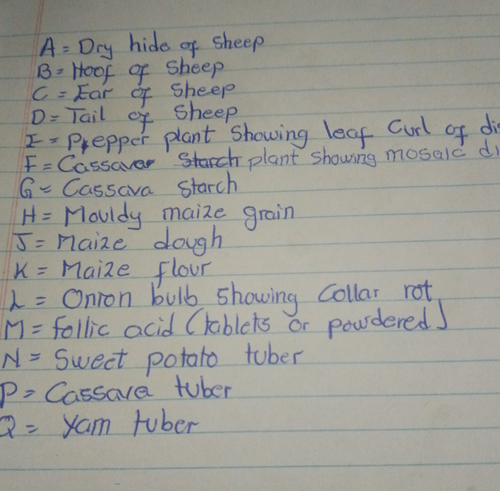 A = Dry hide of Sheep
B = Hoof of Sheep
C = Ear of Sheep
D = Tail of Sheep
E = Pepper plant Showing leaf Curl of di
F = Cassaver Starch plant showing mosaic di
G = Cassava Starch
H = Mouldy maize grain
J = Maize dough
K = Maize flour
L = Onion bulb Showing Collar rot
M = Follic acid (tablets or powdered)
N = Sweet potato tuber
P = Cassava tuber
Q = Yam tuber